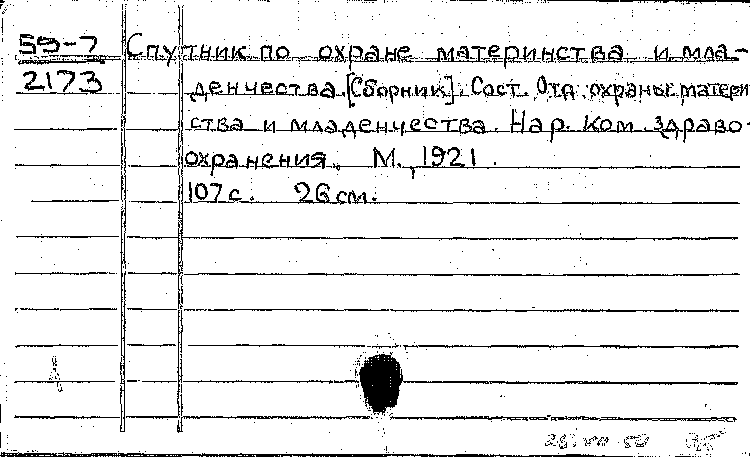 59-7
2173
Спутник по охране материнства и мла-
денчества. [Сборник]. Сост. Отд. охраны матери
ства и младенчества. Нар. ком. здраво-
охранения. М., 1921.
107 с. 26 см.